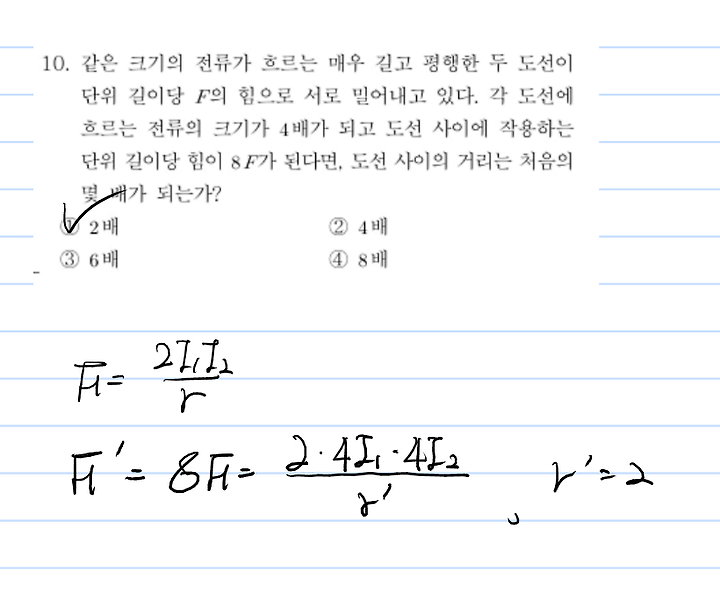 10. 같은 크기의 전류가 흐르는 매우 길고 평행한 두 도선이
단위 길이당 F의 힘으로 서로 밀어내고 있다. 각 도선에
흐르는 전류의 크기가 4배가 되고 도선 사이에 작용하는
단위 길이당 힘이 8F가 된다면, 도선 사이의 거리는 처음의
몇 배가 되는가?
① 2배 ② 4배
③ 6배 ④ 8배
F = 2I₁I₂ / r
F' = 8F = 2·4I₁·4I₂ / r' , r' = 2